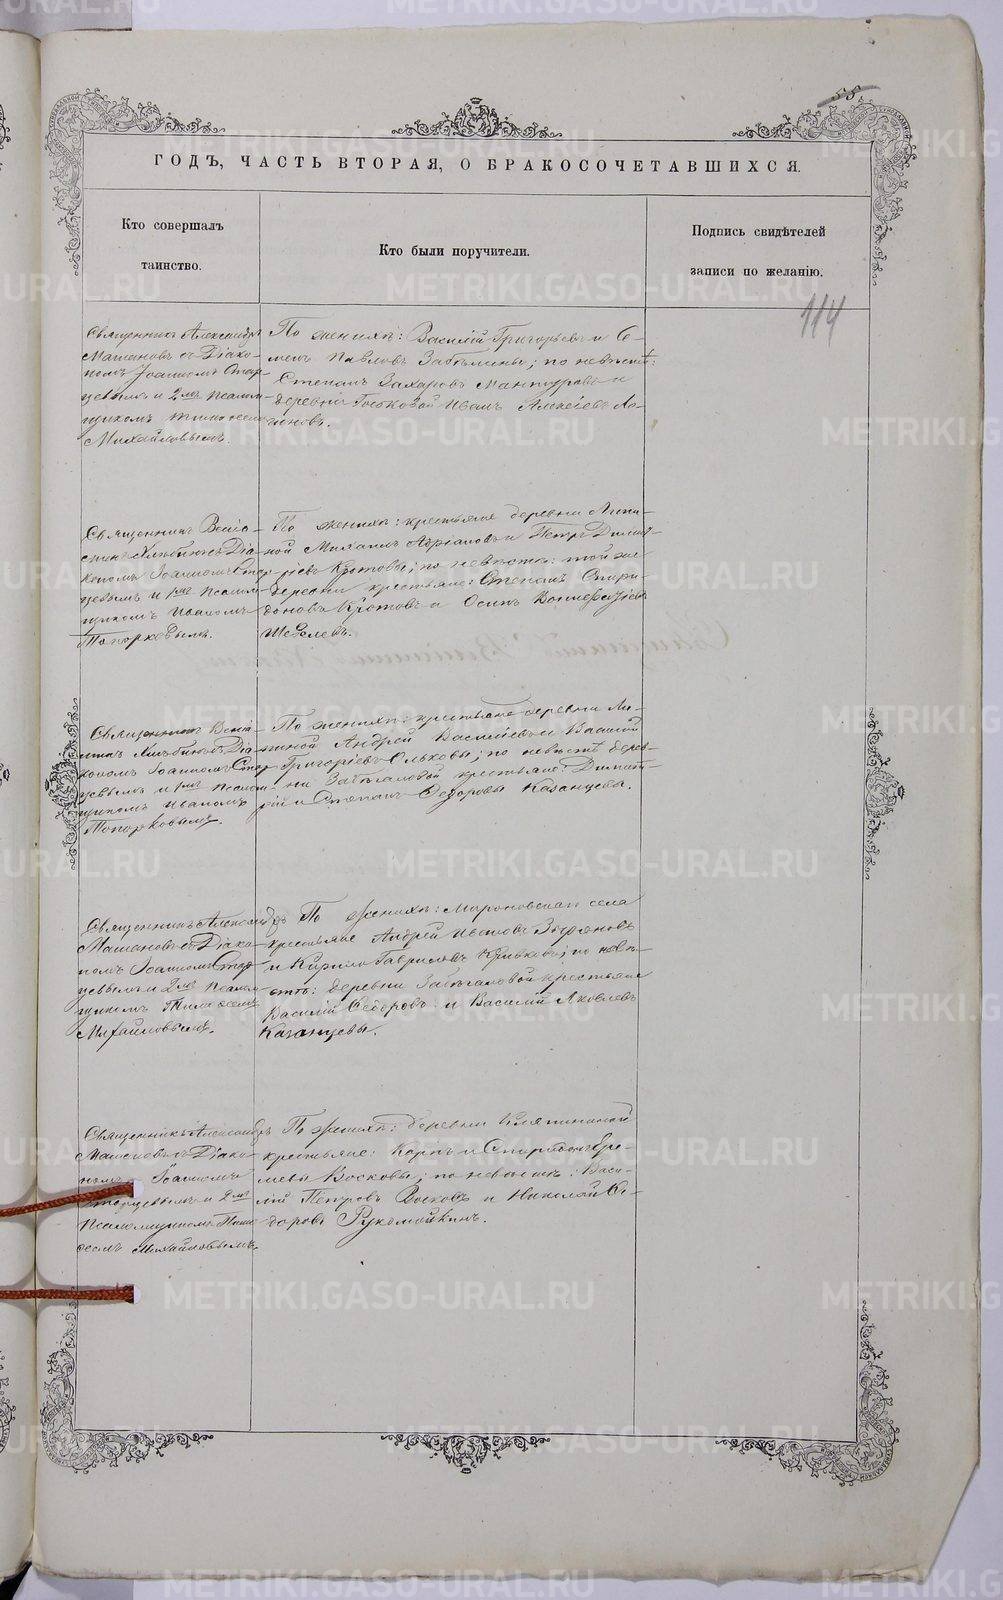 55
ГОДЪ, ЧАСТЬ ВТОРАЯ, О БРАКОСОЧЕТАВШИХСЯ.
Кто совершалъ
таинство.
Кто были поручители.
Подпись свидѣтелей
записи по желанію.
114
Священникъ Александръ
Машановъ съ Діако-
номъ Іоанномъ Стар-
цевымъ и 2мъ псалом-
щикомъ
Михайловымъ.
По женихѣ: Василій Григорьевъ и Се-
менъ Павловъ Забѣлины; по невѣстѣ:
Степанъ Захаровъ Мантуровъ и
деревни Иванъ Алексѣевъ Ло-
гиновъ.
Священникъ
Діа-
кономъ Іоанномъ Стар-
цевымъ и 1мъ псалом-
щикомъ Иваномъ
Топорковымъ.
По женихѣ: крестьяне деревни Липи-
ной Михаилъ и Петръ Димит-
ріевъ Кротовы; по невѣстѣ: той же
деревни крестьяне: Степанъ Спири-
доновъ Кротовъ и Осипъ Вонифатіевъ
Шевелевъ.
Священникъ
Діа-
кономъ Іоанномъ Стар-
цевымъ и 1мъ псалом-
щикомъ Иваномъ
Топорковымъ.
По женихѣ: крестьяне деревни Ли-
пиной Андрей Васильевъ и Василій
Григорьевъ Ольховы; по невѣстѣ дерев-
ни крестьяне: Димит-
рій и Степанъ Ѳедоровы Казанцевы.
Священникъ Александръ
Машановъ съ Діако-
номъ Іоанномъ Стар-
цевымъ и 2мъ псалом-
щикомъ
Михайловымъ.
По женихѣ: Мироновскаго села
крестьяне Андрей Ивановъ
и Кирилъ Гавриловъ по невѣ-
стѣ: деревни крестьяне
Василій Ѳедоровъ и Василій Яковлевъ
Казанцевы.
Священникъ Александръ
Машановъ съ Діако-
номъ Іоанномъ
Старцевымъ и 2мъ
Псаломщикомъ
Михайловымъ.
По женихѣ: деревни
крестьяне: Карпъ и Спиридонъ Ере-
мѣевы Восковы; по невѣстѣ: Васи-
лій Петровъ Восковъ и Николай Ѳе-
доровъ Рукомойкинъ.
METRIKI.GASO-URAL.RU